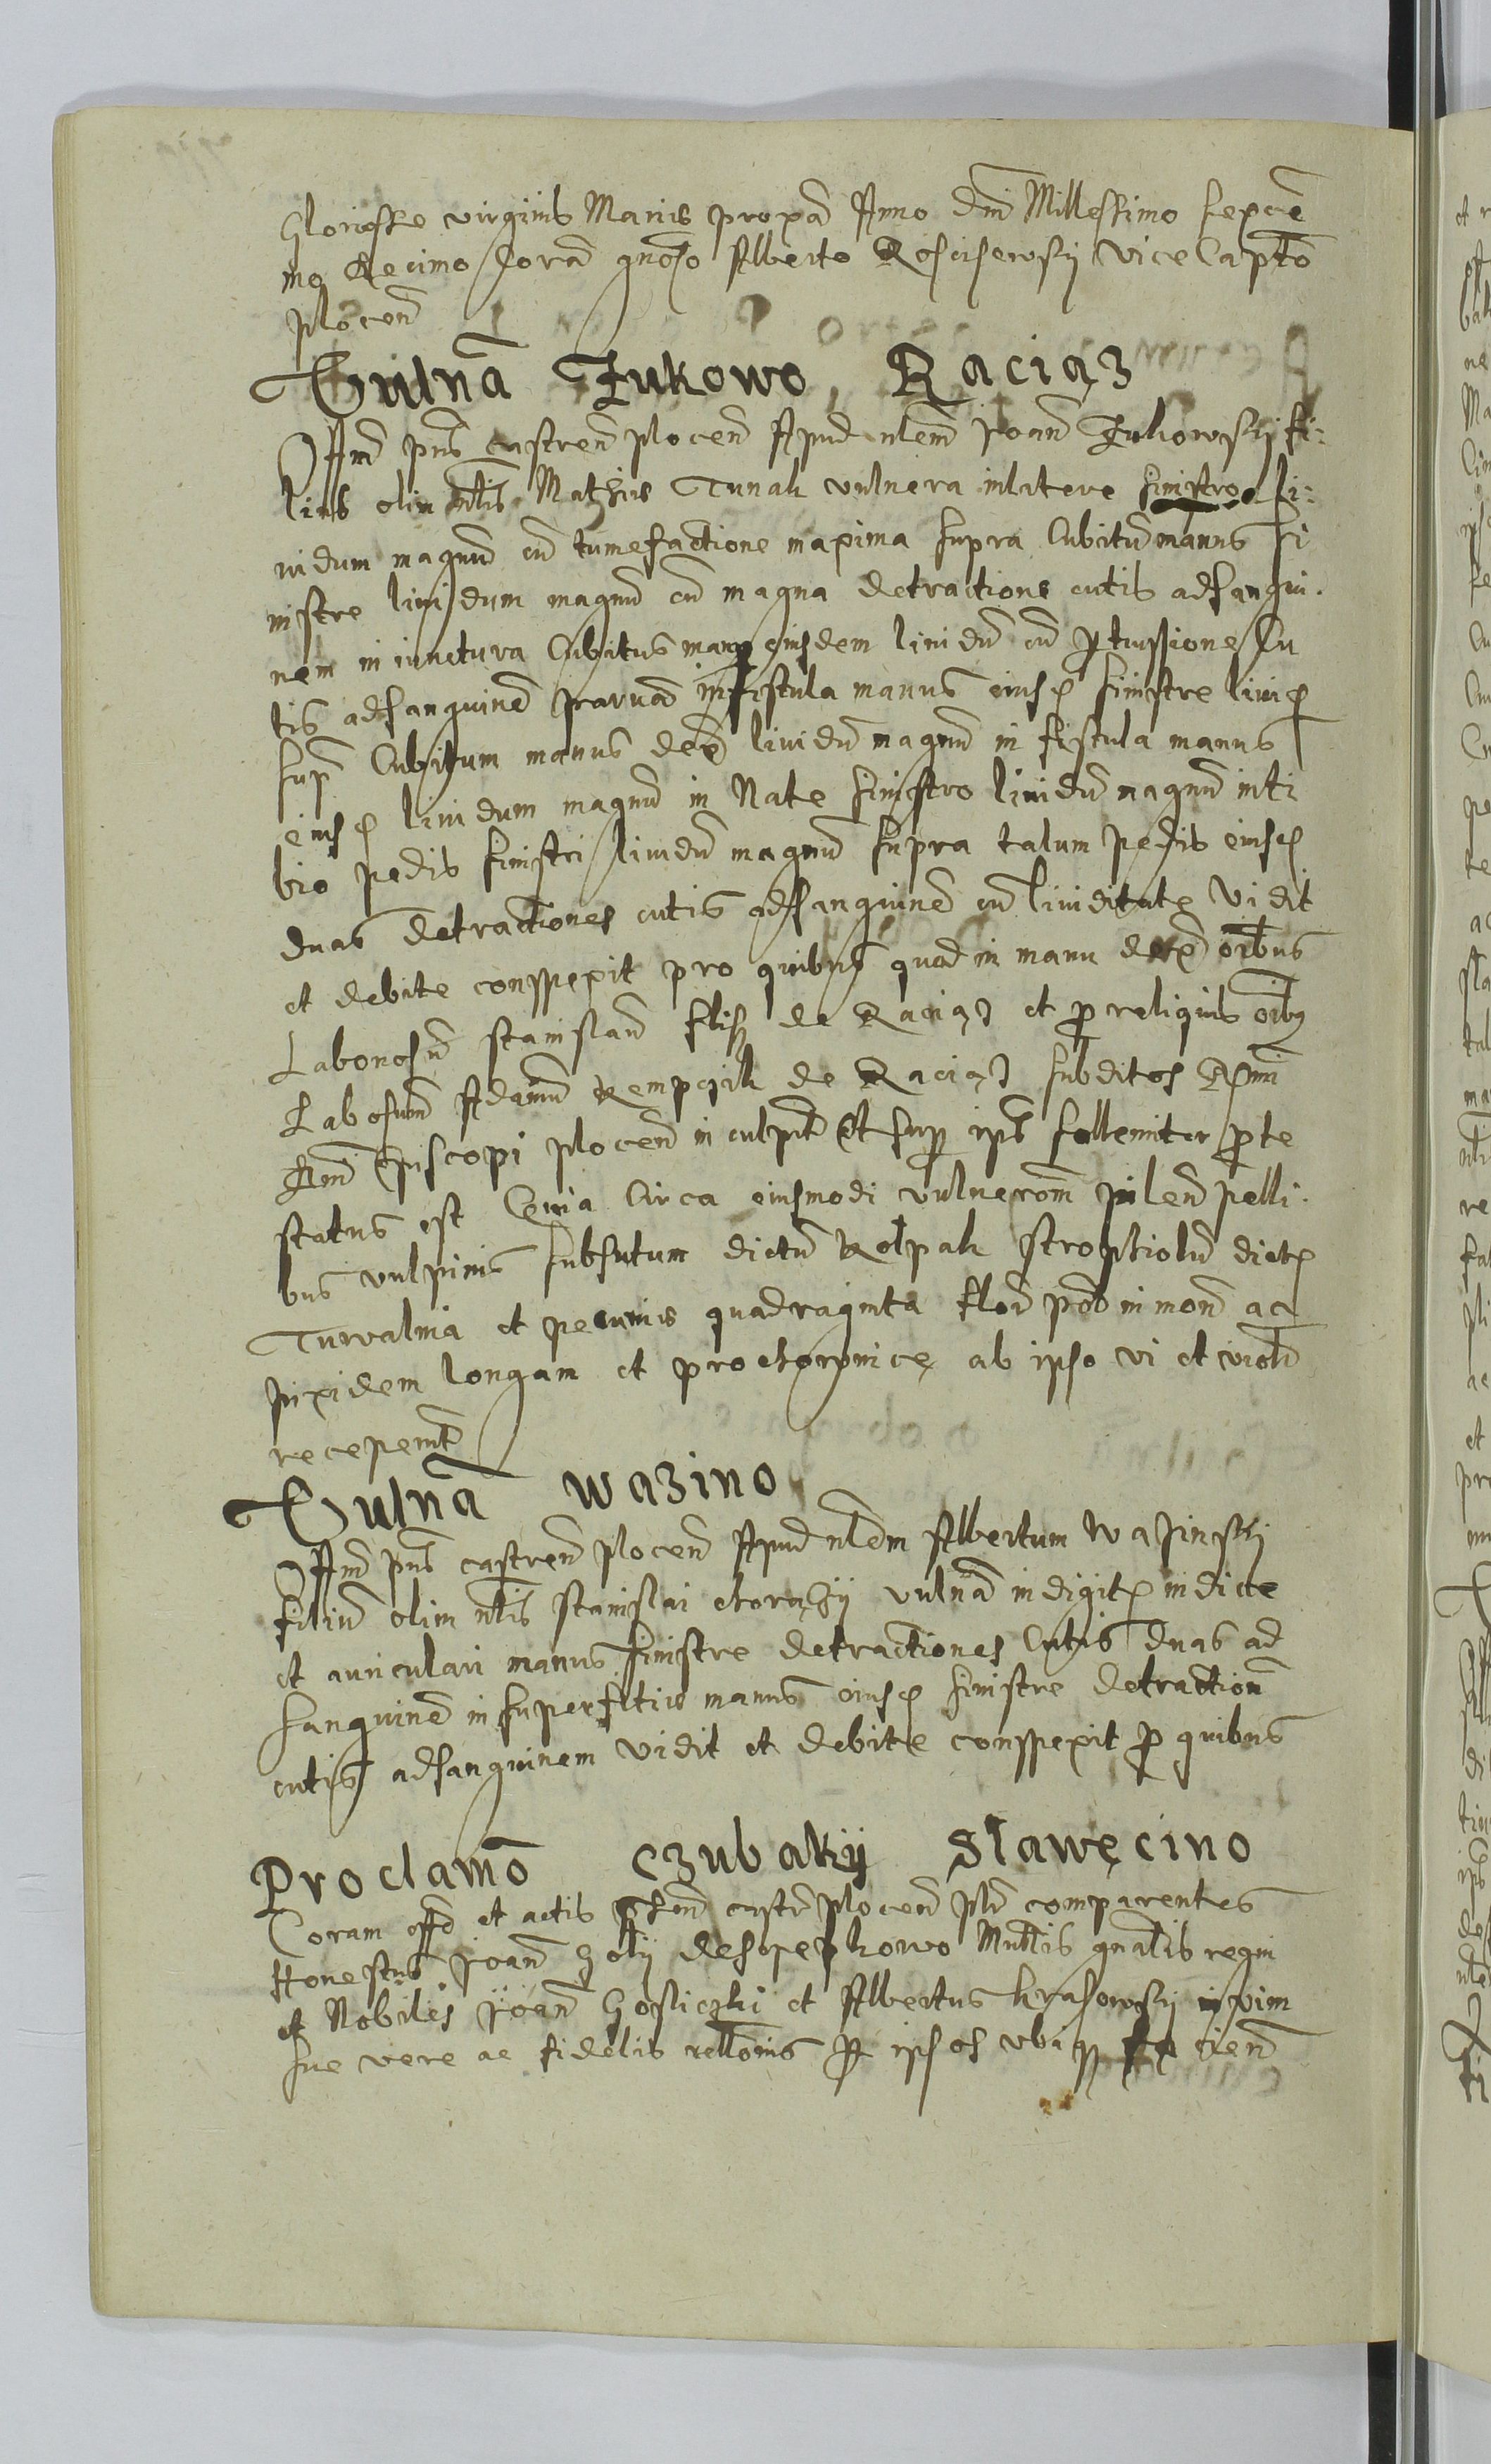 Gloriosse virginis Mariae proxa Anno Dni Millessimo sexcte
mo decimo Coram gnoso Alberto Rosciszewsky Vice Capto
plocen
Vulna Żukowo, Raciąz
Offm pns castren plocen Apud nlem Joan Żukowsky fi:
lius olim nlis Mathias Tunak vulnera in latere sinistro li:
vidum magnu cu tumefactione maxima supra Cubitu manus si
nistre lividum magnu cu magna detractione cutis ad sangui.
nem in iunctura Cubitus manus eiusdem lividu cu pertussione Cu
tis ad sanguine parvam in fistula manus eiusd sinistre livid
sup Cubitum manus dex lividu magnu in fistula manus
eiusd lividum magnu in Nate sinistro lividu magnu in ti
bio pedis sinistri lividu magnu supra talum pedis eiusd
duas detractiones cutis ad sanguine cu lividitate Vidit
et debite conspexit pro quibus quod in manu dext oibus
Laboriosu Stanislau de Raciąz et p reliquis oibus
Labosum Adamu Kempczik de Raciąz subditos
Rmi Episcopi plocen in culpat Et sup ipso sollenniter prote
status est Quia Circa eiusmodi vulneraom pileu pelli.
bus vulpinis subsutum dictu Kolpak strophiolu dict
Tuwalnia et pecunis quadraginta flor pol in mon ac
pixidem longam et ab ipso vi et violen
receperunt
Vulna Wazino
Offm pns castren plocen Apud nlem Albertum Wazinsky
filiu olim nlis Stanislai vulna in digit indice
et auriculari manus sinistre detractiones Cutis duas ad
sanguine in superficie manus eiusd sinistre detraction
cutis ad sanguinem Vidit et debite conspexit p quibus
Proclamo Czubaky Sławęcino
Coram offo et actis pnten castr plocen plr comparentes
Honestus Joan Goly Mnlis gnalis regni
et Nobiles Joan Gosliczki et Albertus Krasowsky in vim
sue vere ac fidelis rellonis p ipsos ubiq facien